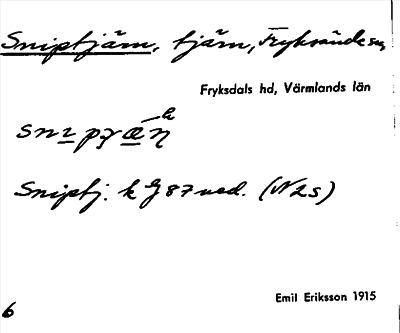 Sniptjärn, tjärn, Fryksände sn,
Fryksdals hd, Värmlands län
Sniptj. k G 87 ned. (N2s)
Emil Eriksson 1915
6